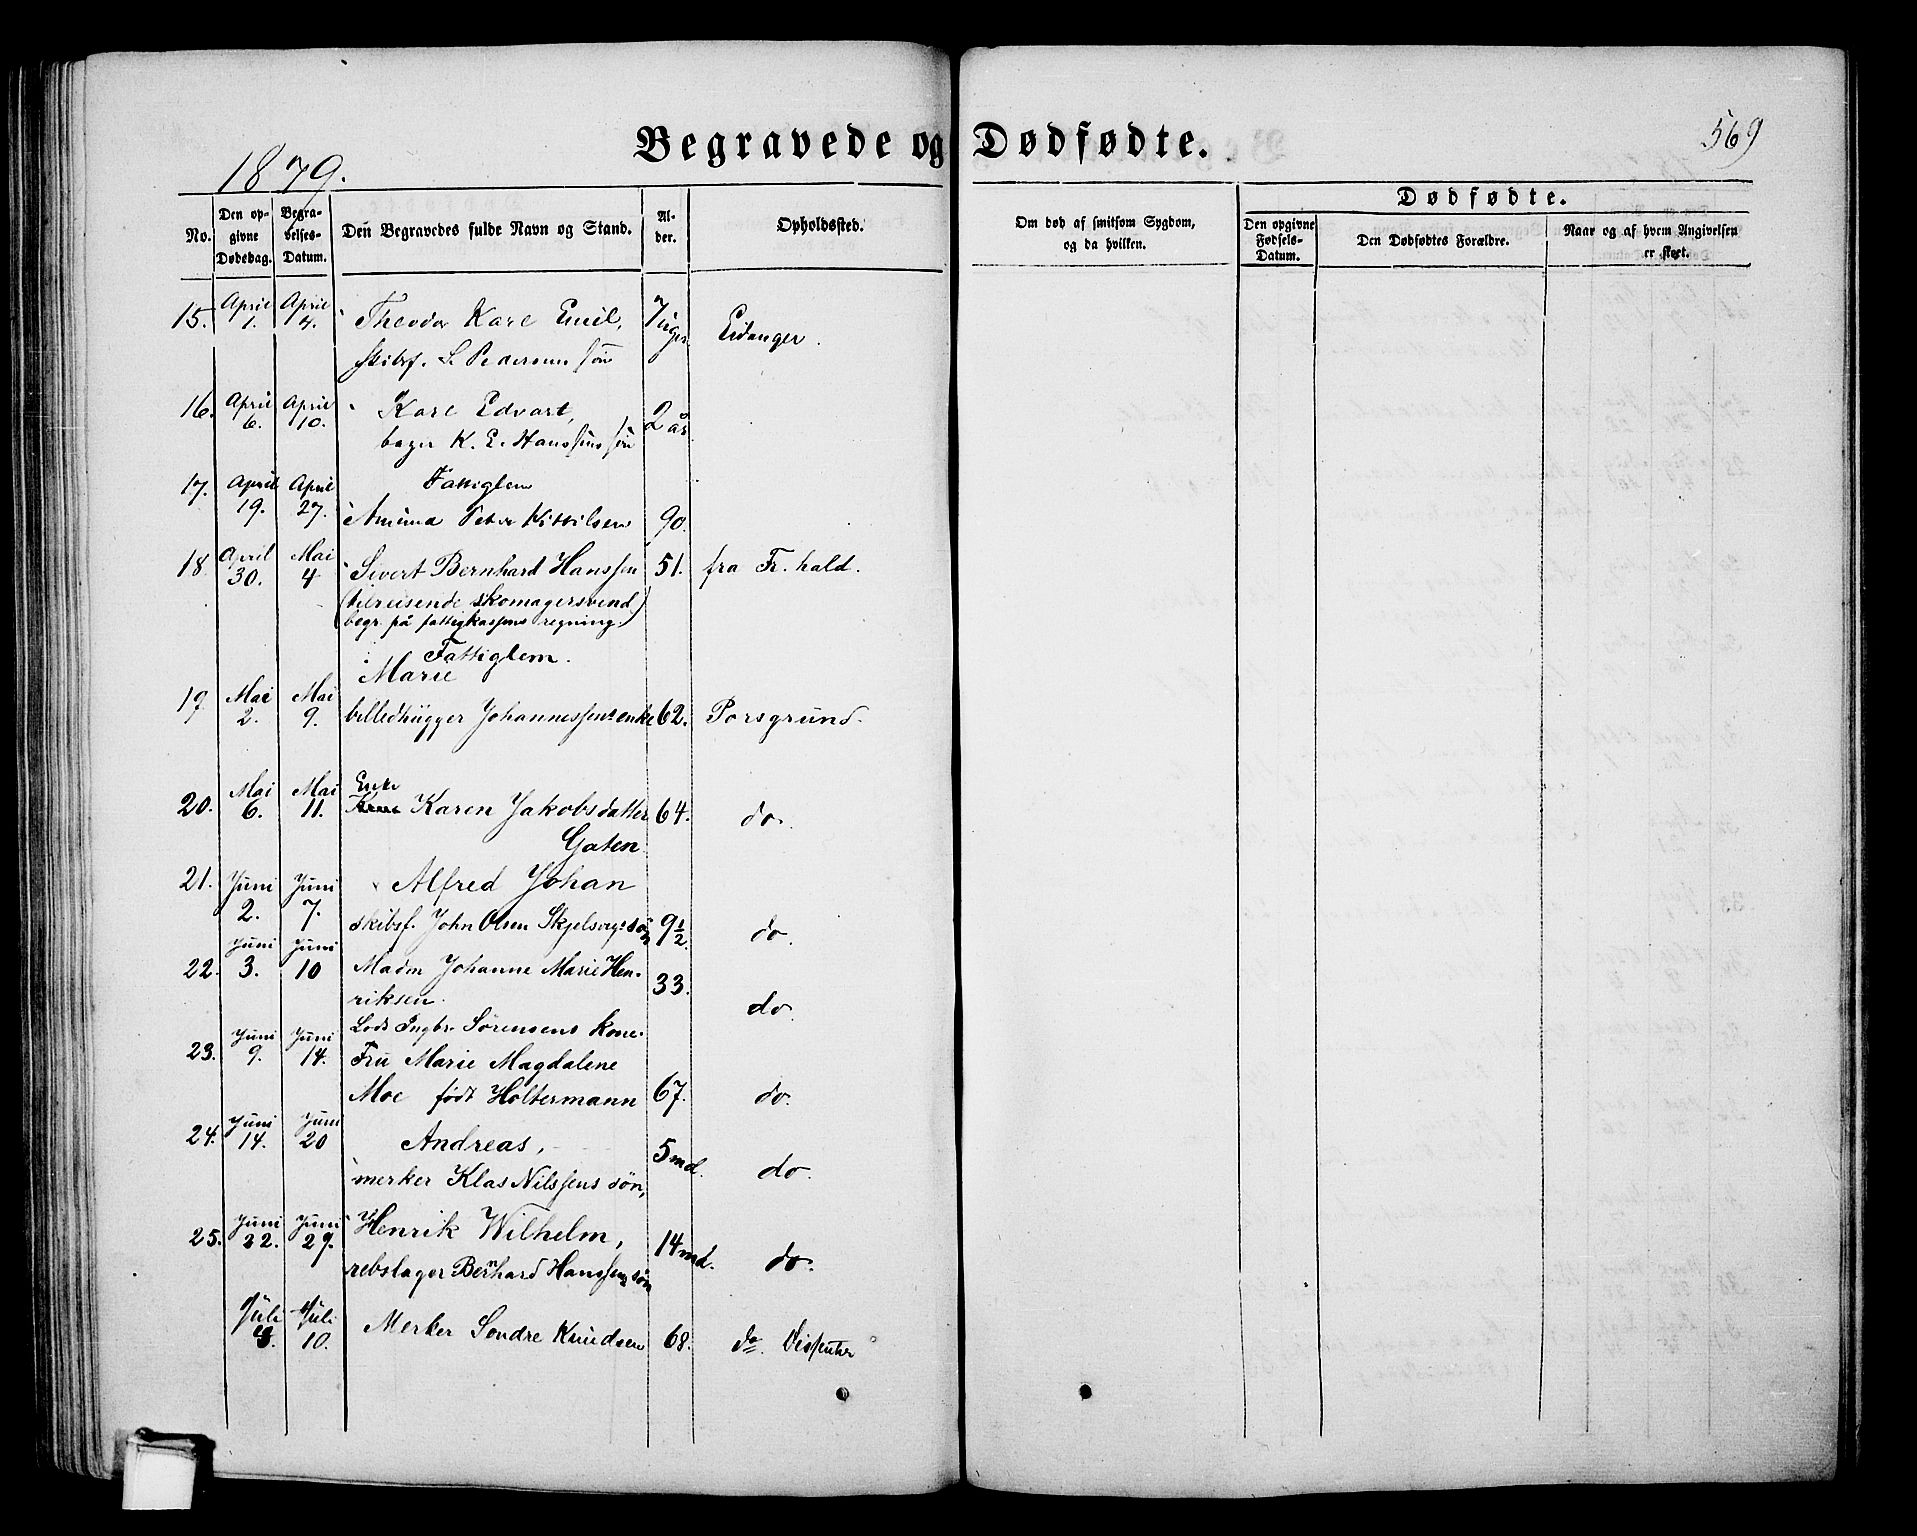 Begravede og Dødfødte.
569
1879.
No.
Den opgivne Dødsdag.
Begravelses-Datum.
Den Begravedes fulde Navn og Stand.
Alder.
Opholdssted.
Om død af smitsom Sygdom, og da hvilken.
Dødfødte.
Den opgivne Fødsels-Datum.
Den Dødfødtes Forældre.
Naar og af hvem Angivelsen er skeet.
15. April 1. April 4. Theodor Karl Emil, 7 uger Eidanger.
skibsf. L. Pedersens søn
16. April 6. April 10. Karl Edvart, 2 år
bager K. E. Hanssens søn
Fattiglem
17. April 19. April 27. Amund Peter Kittilsen 90.
18. April 30. Mai 4 Sivert Bernhard Hanssen 51. fra Fr. hald.
(tilreisende skomagersvend
begr. på fattigkassens regning.)
Fattiglem.
Marie
19 Mai 2. Mai 9. billedhugger Johannessens enke 62. Porsgrund.
Enke
20. Mai 6. Mai 11. Karen Jakobsdatter 64. do.
Gaten
21. Juni 2. Juni 7. Alfred Johan
skibsf. John Olsen Skjelsvigs søn 9½ do.
22. Juni 3. Juni 10 Madm Johanne Marie Hen-
riksen. 33. do.
Lods Ingbr. Sørensens kone.
23. Juni 9. Juni 14. Fru Marie Magdalene
Moe født Holtermann 67. do.
24. Juni 14. Juni 20 Andreas, 5 md. do.
merker Klas Nilssens søn,
25. Juni 22. Juni 29. Henrik Wilhelm, 14 md. do.
rebslager Bernhard Hanssens søn
Juli Juli 10. Merker Sondre Knudsen 68. do. Dissenter